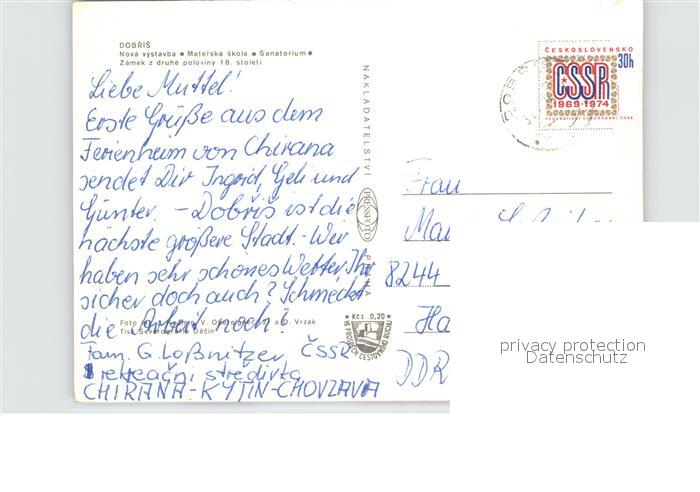 DOBŘÍŠ
Nová výstavba ● Mateřská škola ● Sanatorium ●
Zámek z druhé poloviny 18. století
Liebe Muttel!
Erste Grüße aus dem
Ferienheim von Chirana
sendet Dir Ingrid, Geli und
Günter. – Dobříš ist die
nächste größere Stadt. - Wir
haben sehr schönes Wetter. Ihr
sicher doch auch? Schmeckt
die Arbeit noch?
Foto V. D. Vrzák
Tisk Severografia Děčín
Fam. G. Loßnitzer ČSSR
rekreační středisko
CHIRANA-KYTIN-CHOUZAVA
NAKLADATELSTVÍ
PRESSFOTO
PRAHA
Kčs 0,20
ČESKOSLOVENSKO
30h
ČSSR
1969-1974
FEDERATIVNÍ USPOŘÁDÁNÍ ČSSR
Frau
8244
DDR
privacy protection
Datenschutz